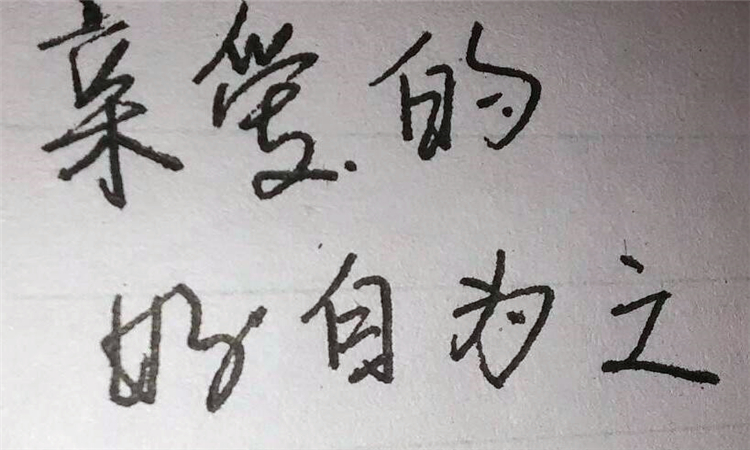 亲爱的
好自为之